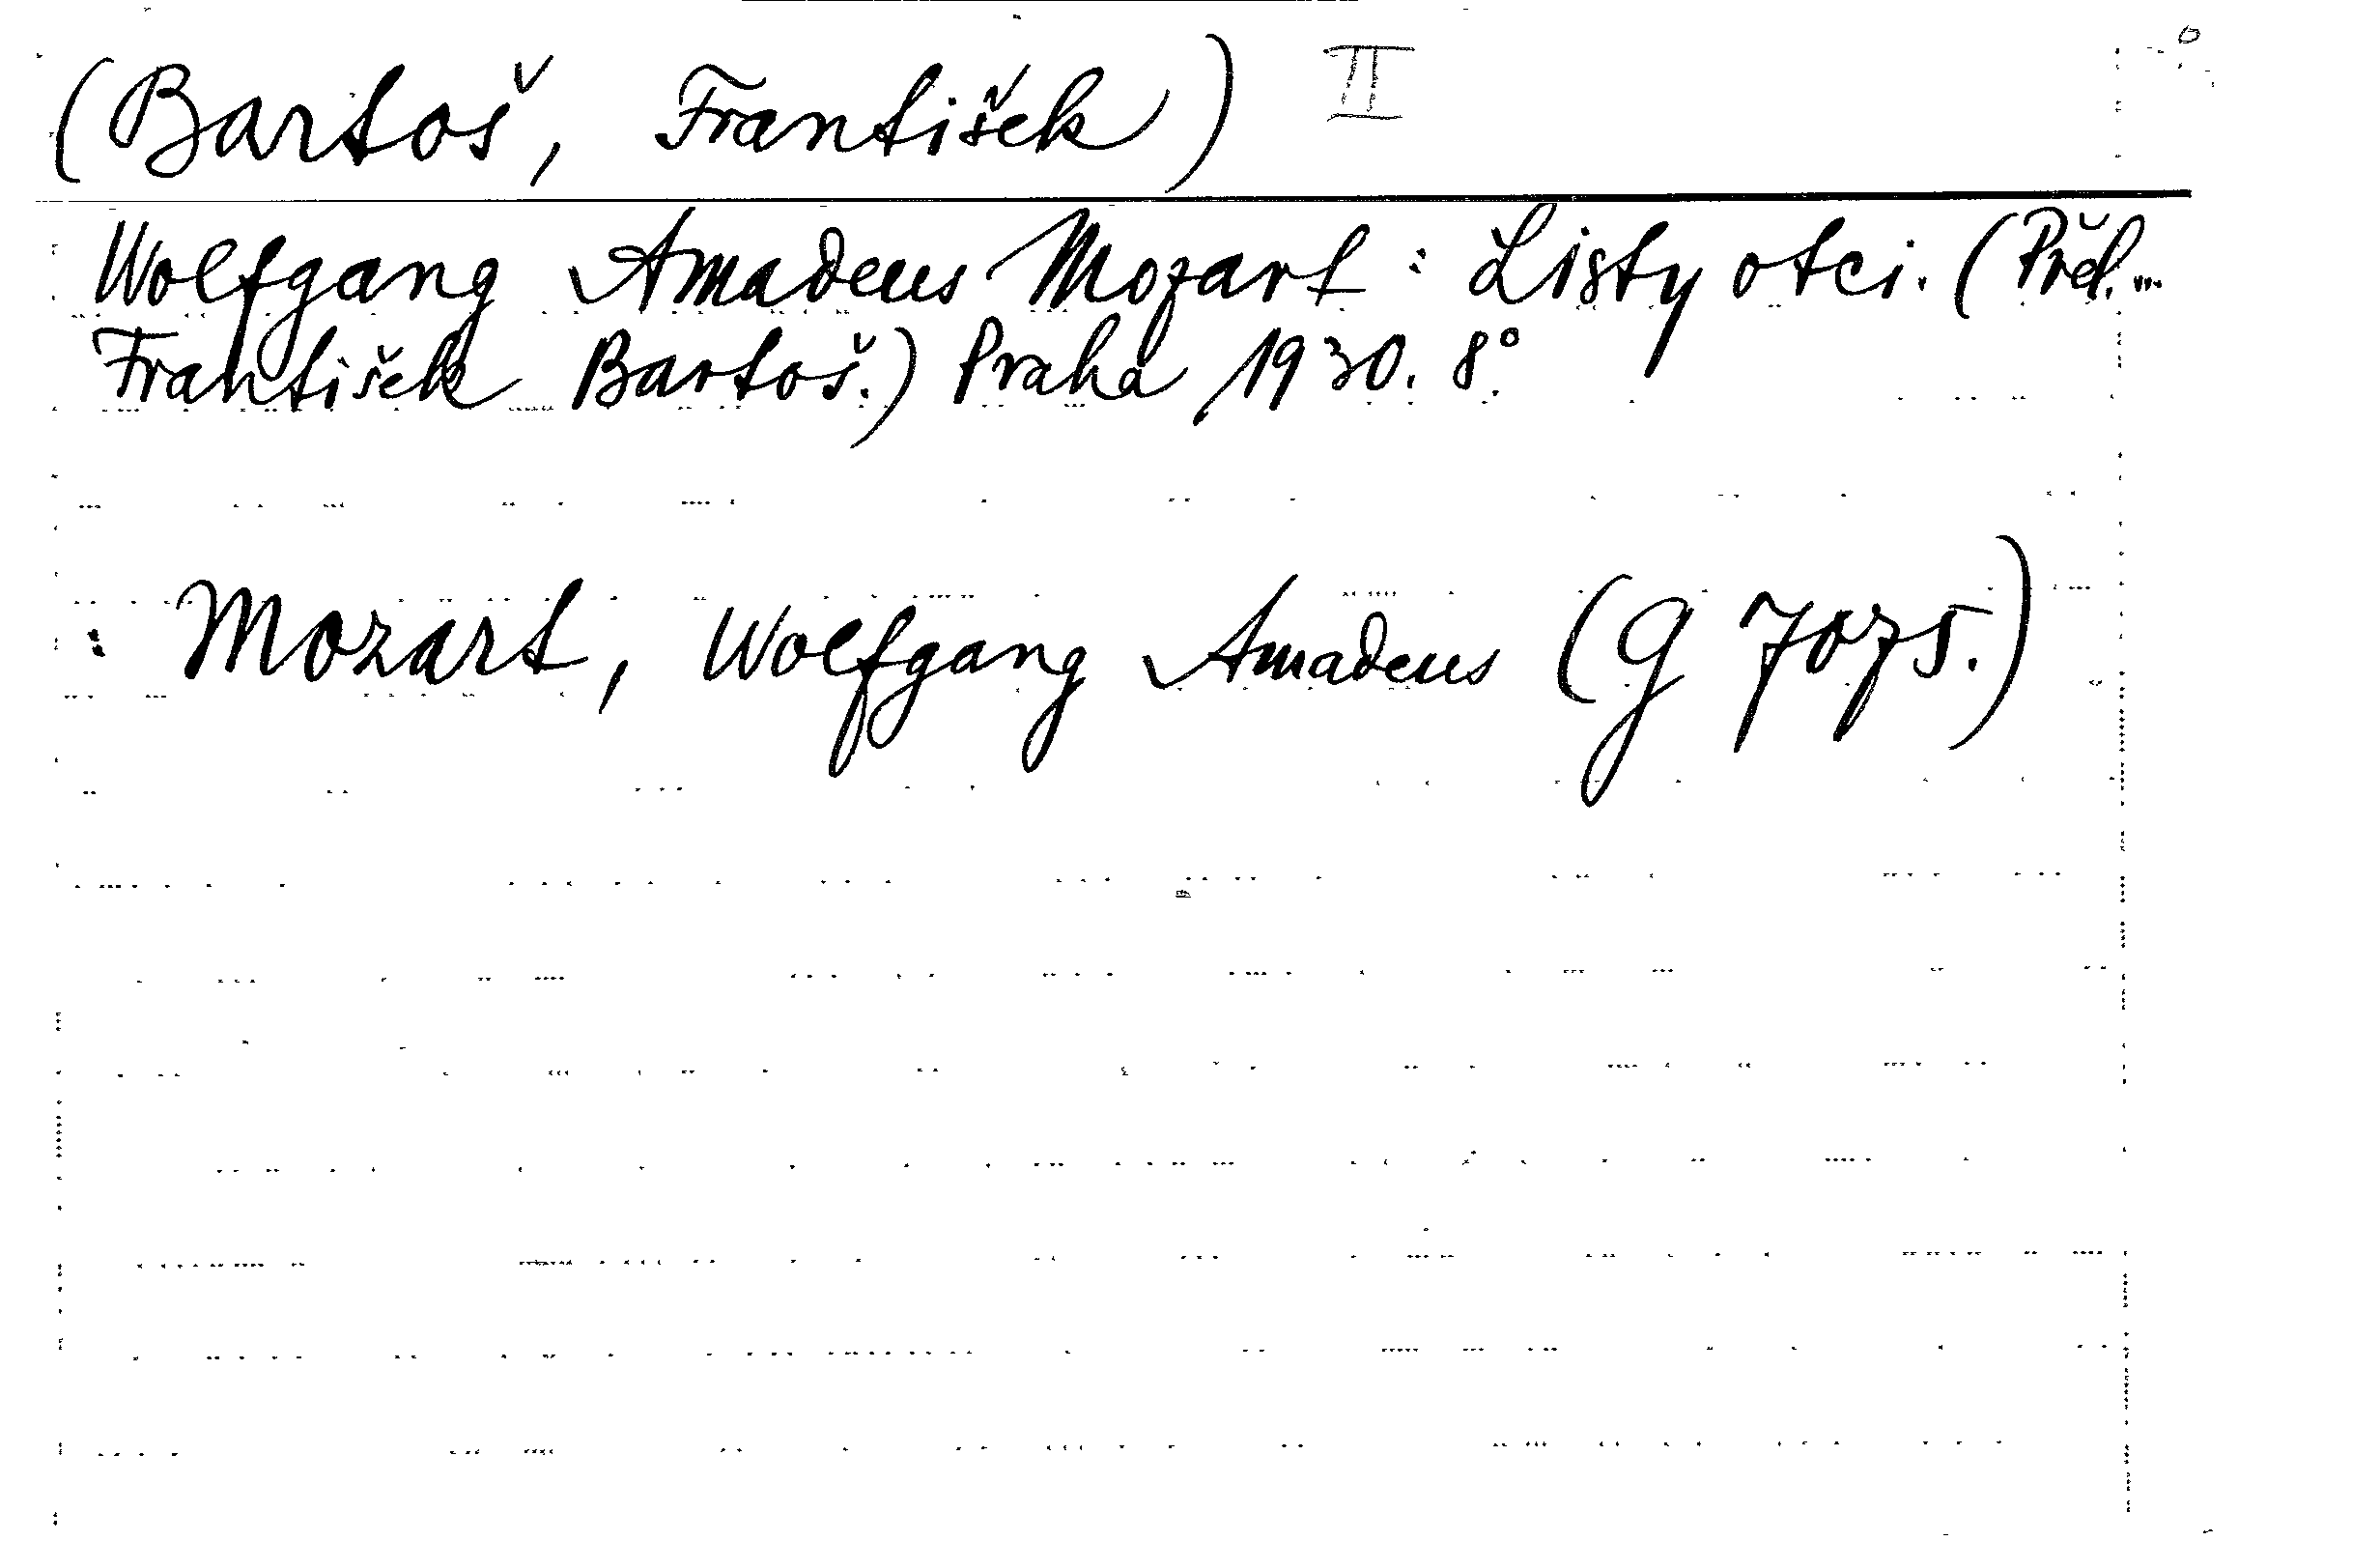 (Bartoš, František) II
Wolfgang Amadeus Mozart: Listy otci. (Přel...
František Bartoš.) Praha 1930. 8°.
: Mozart, Wolfgang Amadeus (G 7075.)